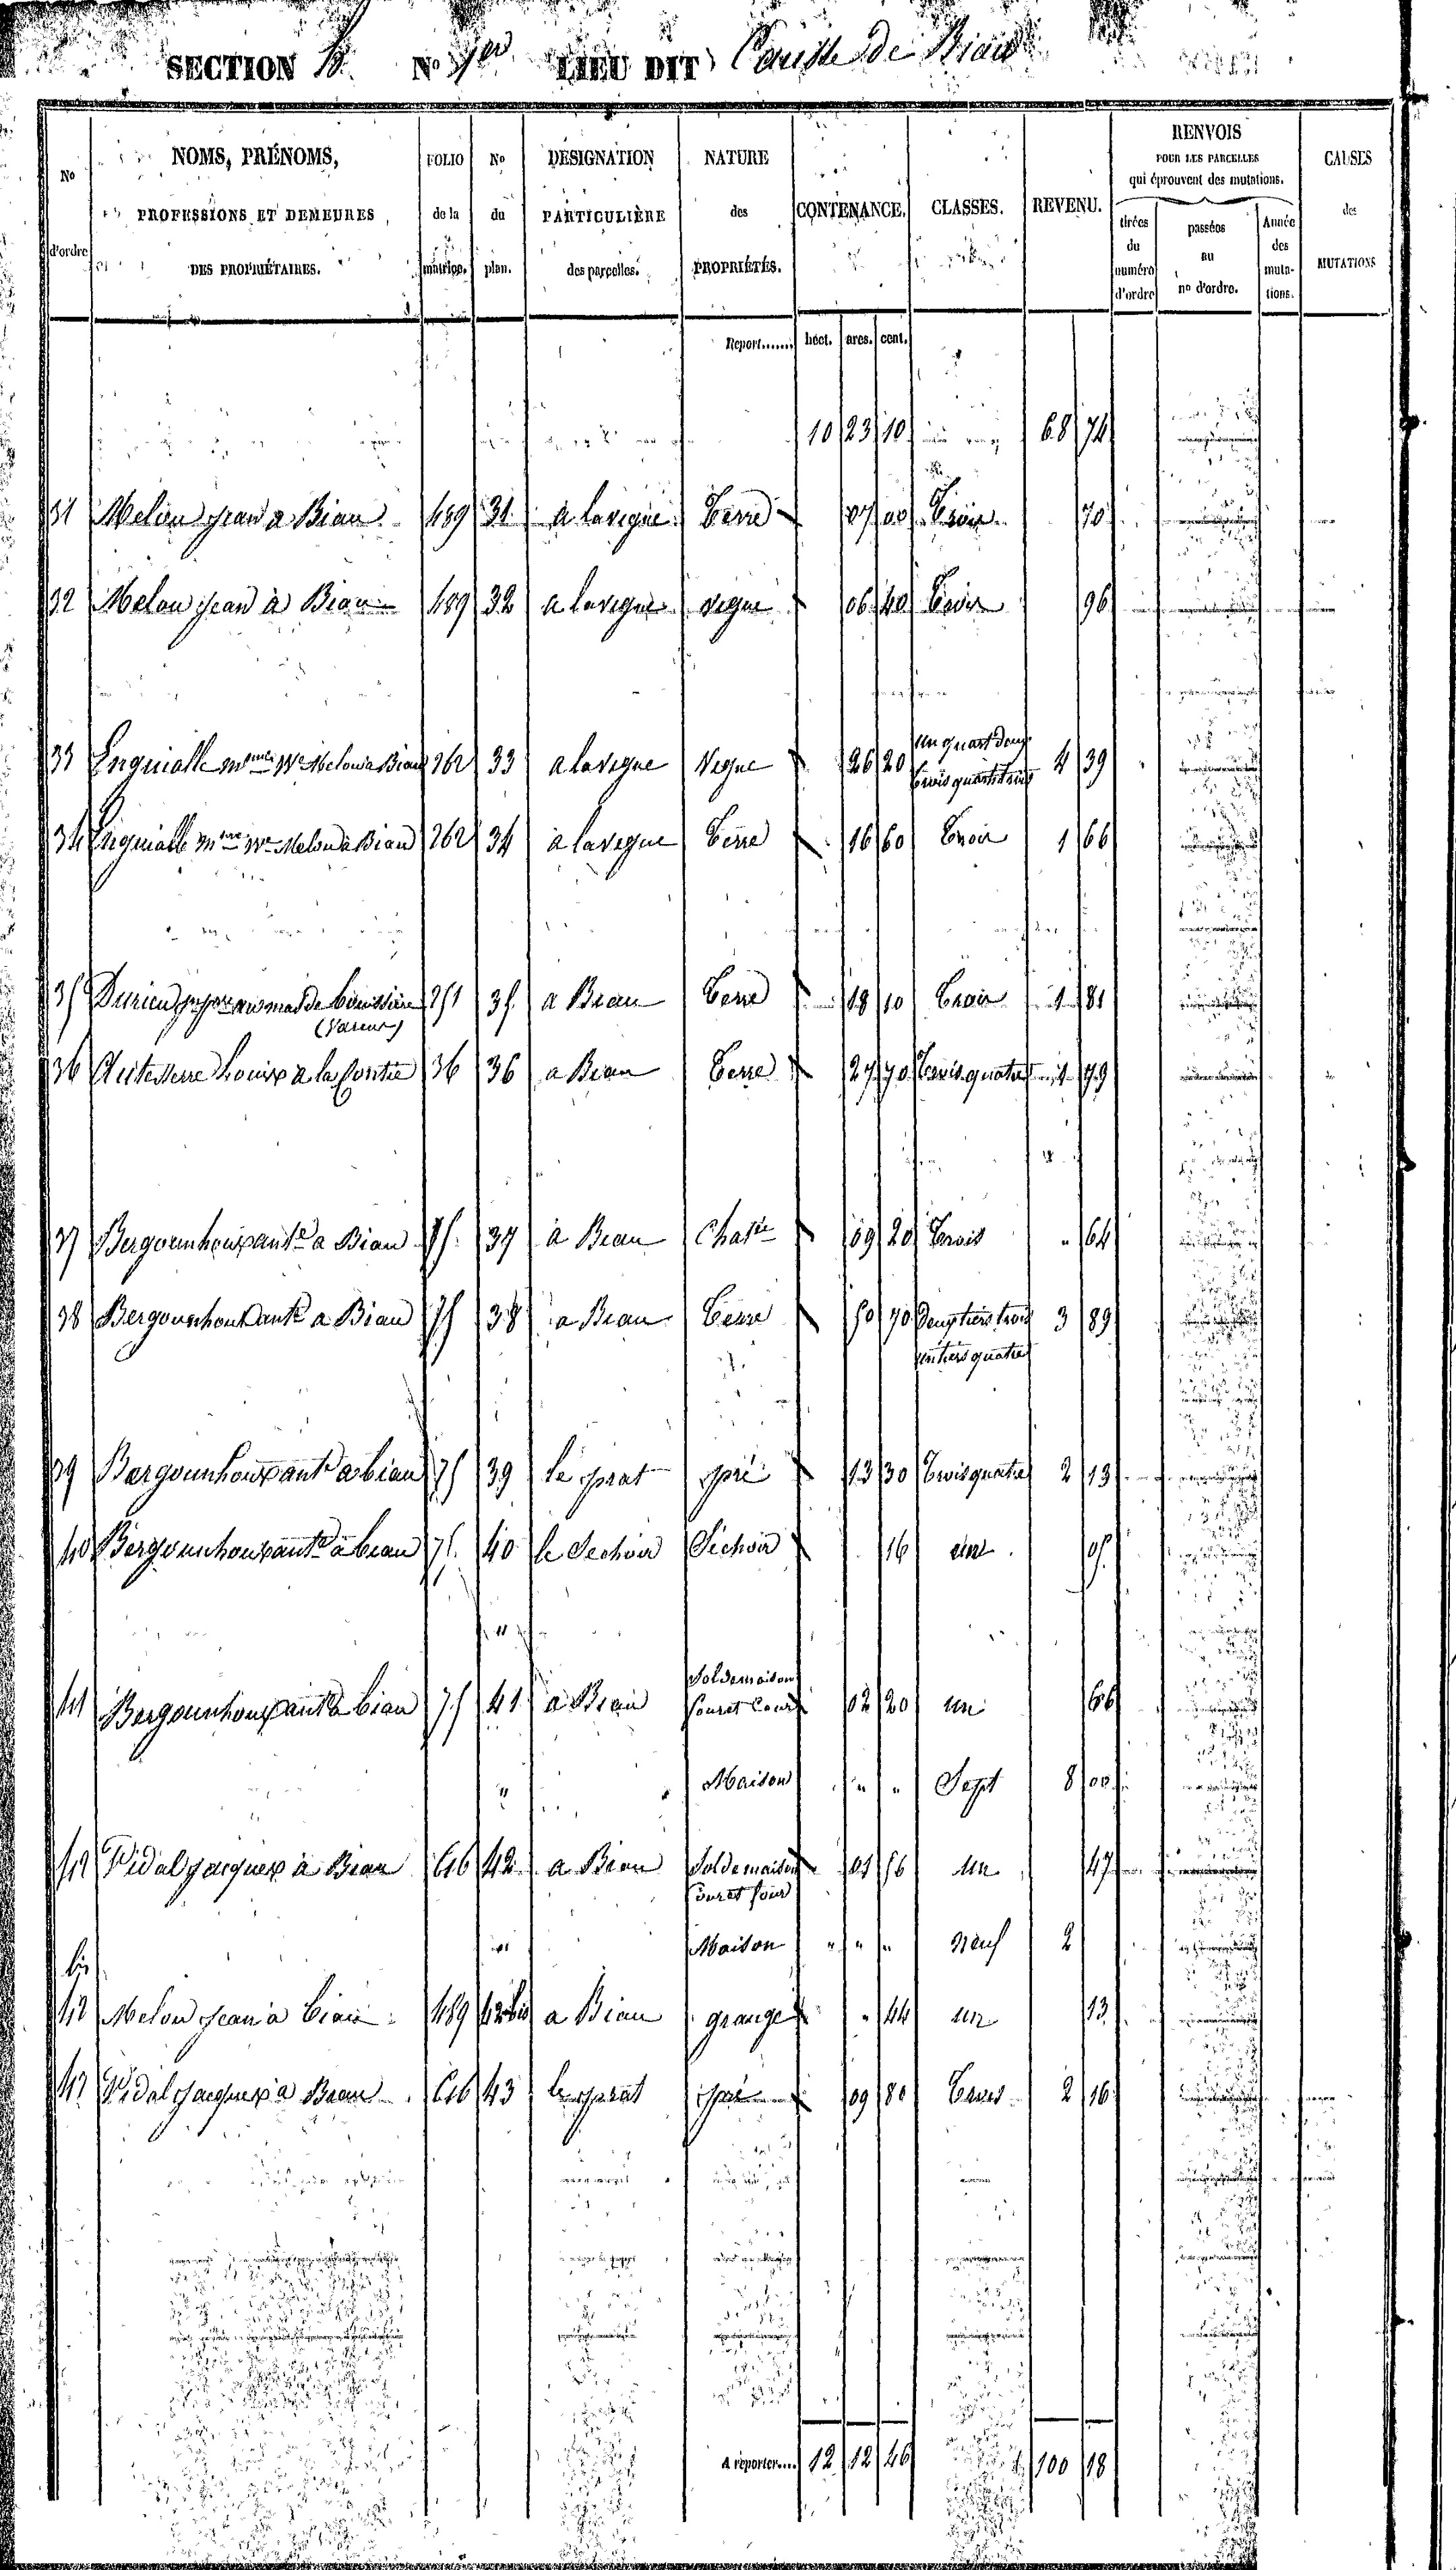 SECTION B No 1er LIEU DIT Causse de Biau
No d'ordre | NOMS, PRÉNOMS, PROFESSIONS ET DEMEURES DES PROPRIÉTAIRES. | FOLIO de la matrice. | No du plan. | DÉSIGNATION PARTICULIÈRE des parcelles. | NATURE des PROPRIÉTÉS. | CONTENANCE. | CLASSES. | REVENU. | RENVOIS POUR LES PARCELLES qui éprouvent des mutations. | CAUSES des MUTATIONS
tirées du numéro d'ordre | passées au no d'ordre. | Année des mutations.
Report....... hect. ares. cent.
10 23 10 68 74
31 Melou Jean a Biau 489 31 a lavigne Terre 07 00 Trois 70
32 Melou Jean à Biau 489 32 a lavigne vigne 06 40 Trois 96
un quart deux
33 Enguialle Ve Melou a Biau 262 33 a lavigne Vigne 26 20 trois quarts trois 4 39
34 Enguialle Ve Melou à Biau 262 34 à lavigne Terre 16 60 Trois 1 66
35 Durieu 251 35 a Biau Terre 18 10 Trois 1 81
36 Louis a la 36 36 a Biau Terre 27 70 Trois quatre 1 79
37 Bergounhoux ante a Biau 75 37 à Biau Chatre 09 20 Trois " 64
38 Bergounhoux ante a Biau 75 38 a Biau Terre 50 70 Deux tiers trois 3 89
un tiers quatre
39 Bergounhoux ante a biau 75 39 le prat pré 13 30 Trois quatre 2 13
40 Bergounhoux ante à biau 75 40 le Sechoir Séchoir 16 une 05
Sol de maison
41 Bergounhoux ante à biau 75 41 à Biau four et Cour 02 20 un 66
" Maison " " Sept 8 00
42 Vidal Jacques à Biau 616 42 a Biau Sol de maison 01 56 un 47
Cour et four
" Maison " " " neuf 2
bis
42 Melou Jean à biau 489 42 bis a Biau grange " 44 un 13
43 Vidal Jacques a Biau 616 43 le prat pré 09 80 Trois 2 16
A reporter.... 12 12 46 100 18